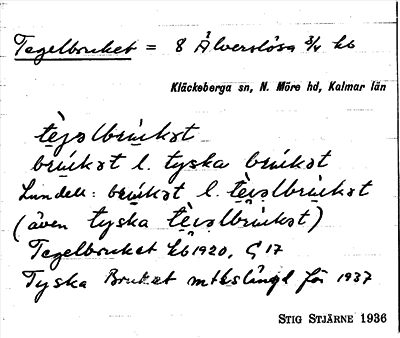 Tegelbruket = 8 Älverslösa 3/4 kb
Kläckeberga sn, N. Möre hd, Kalmar län
tè̱jəlbrùkət
brúkət l. tyska brúkət
Lundell: brúkət l. tè̱jəlbrùkət
(även tyska tè̱jəlbrùkət)
Tegelbruket kb 1920, G 17
Tyska Bruket mtkslängd för 1937
STIG STJÄRNE 1936